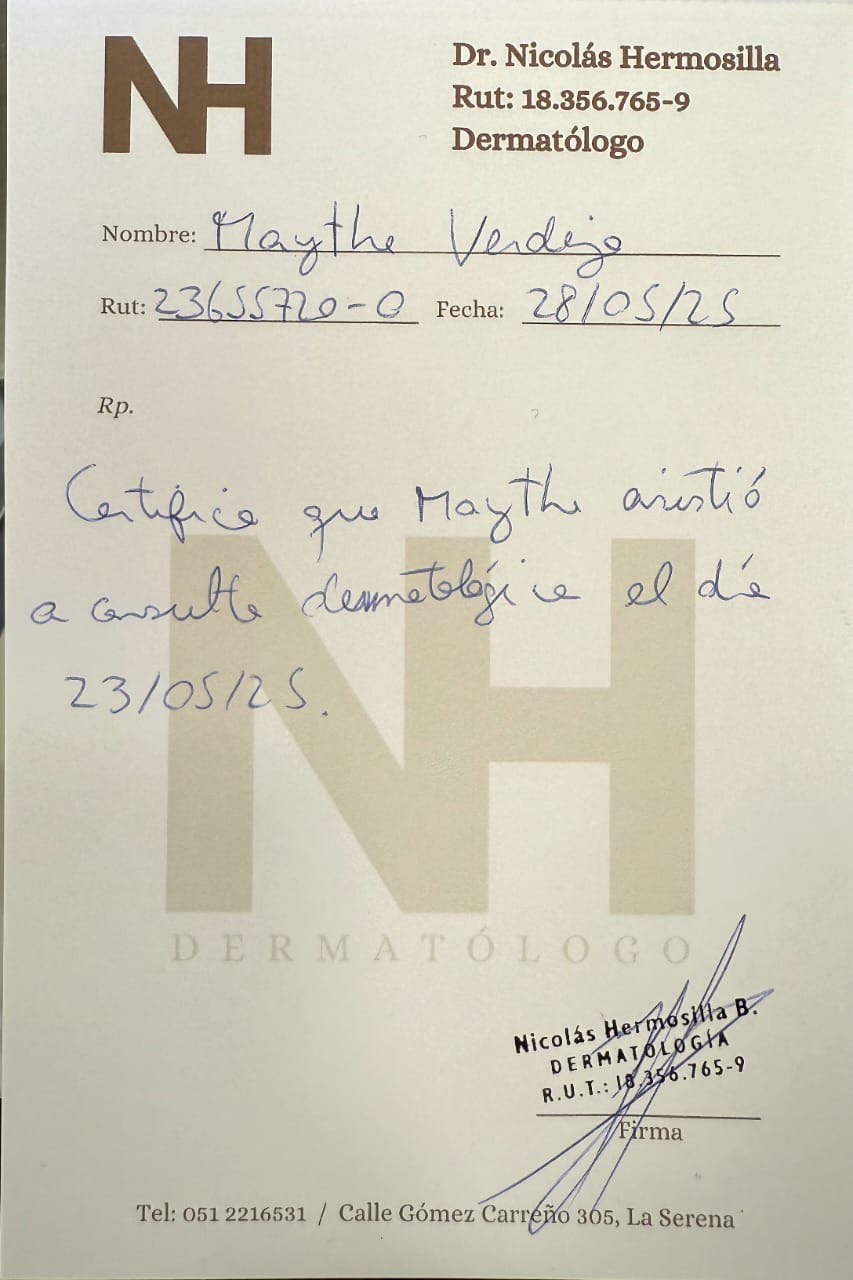 NH
Dr. Nicolás Hermosilla
Rut: 18.356.765-9
Dermatólogo
Nombre: Maythe Verdejo
Rut: 23655720-0 Fecha: 28/05/25
Rp.
Certifico que Maythe asistió
a consulta dermatológica el día
23/05/25.
NH
DERMATÓLOGO
Nicolás Hermosilla B.
DERMATOLOGÍA
R.U.T.: 18.356.765-9
Firma
Tel: 051 2216531 / Calle Gómez Carreño 305, La Serena